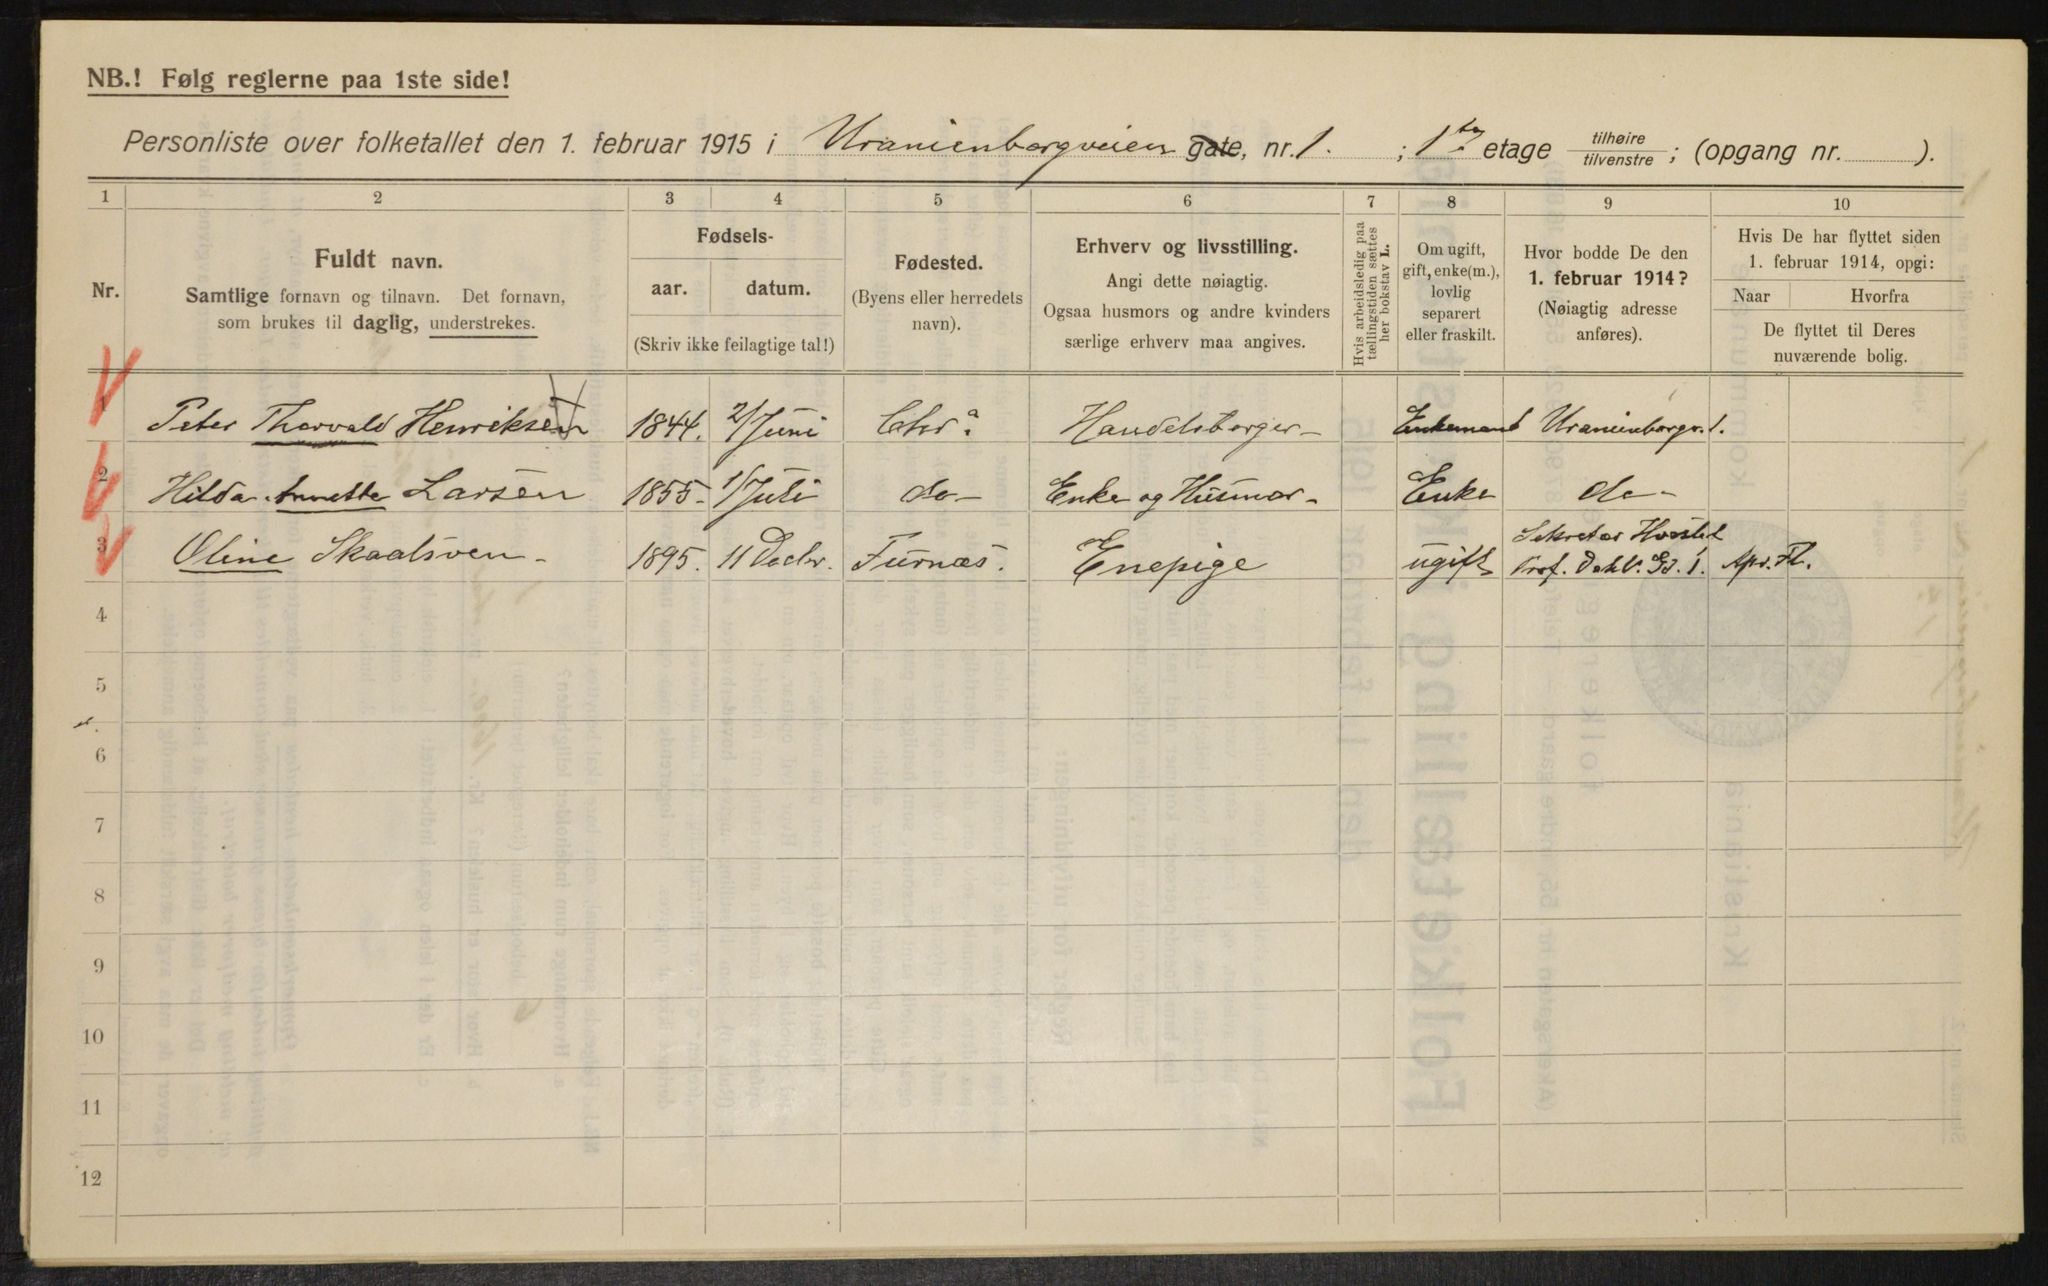 NB.! Følg reglerne paa 1ste side!
Personliste over folketallet den 1. februar 1915 i Uranienborgveien gate, nr. 1. ; 1ste etage tilhøire tilvenstre ; (opgang nr. ).
1 2 3 4 5 6 7 8 9 10
Nr.
Fuldt navn.
Samtlige fornavn og tilnavn. Det fornavn,
som brukes til daglig, understrekes.
Fødsels-
aar. datum.
(Skriv ikke feilagtige tal!)
Fødested.
(Byens eller herredets
navn).
Erhverv og livsstilling.
Angi dette nøiagtig.
Ogsaa husmors og andre kvinders
særlige erhverv maa angives.
Hvis arbeidsledig paa
tællingstiden sættes
her bokstav L.
Om ugift,
gift, enke(m.),
lovlig
separert
eller fraskilt.
Hvor bodde De den
1. februar 1914?
(Nøiagtig adresse
anføres).
Hvis De har flyttet siden
1. februar 1914, opgi:
Naar Hvorfra
De flyttet til Deres
nuværende bolig.
1 Peter Thorvald Henriksen 1844. 2/Juni Chr.a Handelsborger- Enkemand Uranienborgv. 1.
2 Hilda Annette Larsen 1855- 1/Juli do- Enke og Husmor- Enke do-
3 Oline Skaalsven- 1895. 11 Decbr. Furnæs. Enepige ugift Sekretær
Prof. Dahl. Gd. 1. Apr. Fl.
4
5
6
7
8
9
10
11
12